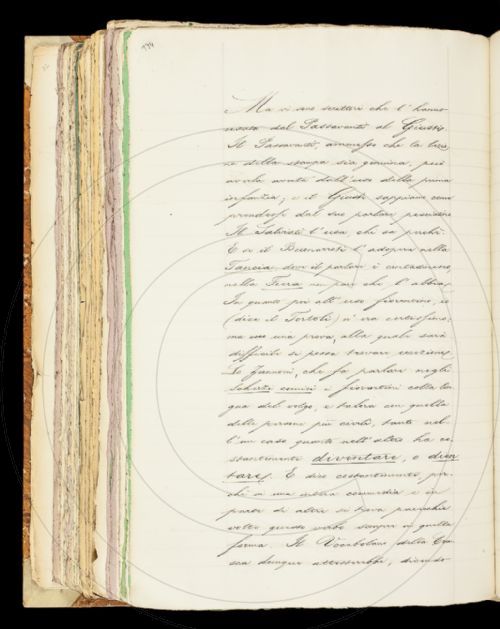 Ma vi sono scrittori che l'hanno
usata dal Passavanti al Giusti.
Il Passavanti, ammesso che la lezio
ne della stampa sia genuina, però
avuta dall'uso della prima
infanzia; e il Giusti sappiamo come
prendesse dal suo parlare pesciatino
M. Salviati l'usa che sa perché.
E se il Buonarroti l'adopra nella
Tancia, dove il parlare è contadinesco,
nella Fiera non pare che l'abbia.
In quanto poi all'uso fiorentino, io
(dice il Tortoli) n'era certissimo;
ma una prova, alla quale sarà
difficile si possa trovare eccezione,
Lo Zannoni, che fa parlare negli
Scherzi comici i fiorentini colla lin
gua del volgo, e talora con quella
delle persone più civili, tanto nel
l'un caso quanto nell'altro ha co
stantemente diventare, o dien
tare. E dico costantemente, per
ché in una intera commedia e in
parte di altra si trova parecchie
volte questo verbo sempre in quella
forma. Il Vocabolario della Cru
sca dunque dicendo